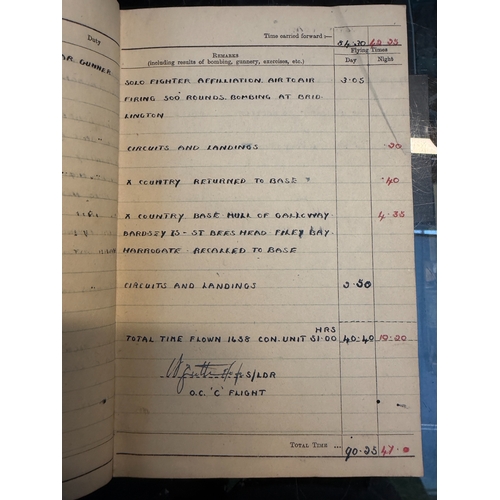 Time carried forward :— 54.20 42.25
Duty
REMARKS
(including results of bombing, gunnery, exercises, etc.)
Flying Times
Day Night
GUNNER
SOLO FIGHTER AFFILIATION. AIR TO AIR 3.05
FIRING 500 ROUNDS. BOMBING AT BRID
LINGTON
CIRCUITS AND LANDINGS .20
X COUNTRY RETURNED TO BASE .40
X COUNTRY BASE MULL OF GALLOWAY 4.35
BARDSEY IS - ST BEES HEAD FILEY BAY
HARROGATE RECALLED TO BASE
CIRCUITS AND LANDINGS 3.50
HRS
TOTAL TIME FLOWN 1658 CON. UNIT 51.00 40.40 19.20
S/LDR
O.C. 'C' FLIGHT
TOTAL TIME ... 90.25 47.0